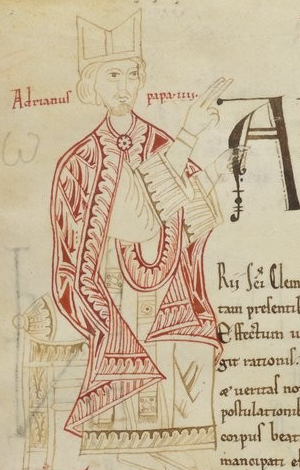 Adrianus papa·iiii·
A
Rii ſcĩ Clem
tam preſentib
Effectum u
git rationiſ.
æ ueritaſ no
poſtulationib
corpuſ beat
mancipati et